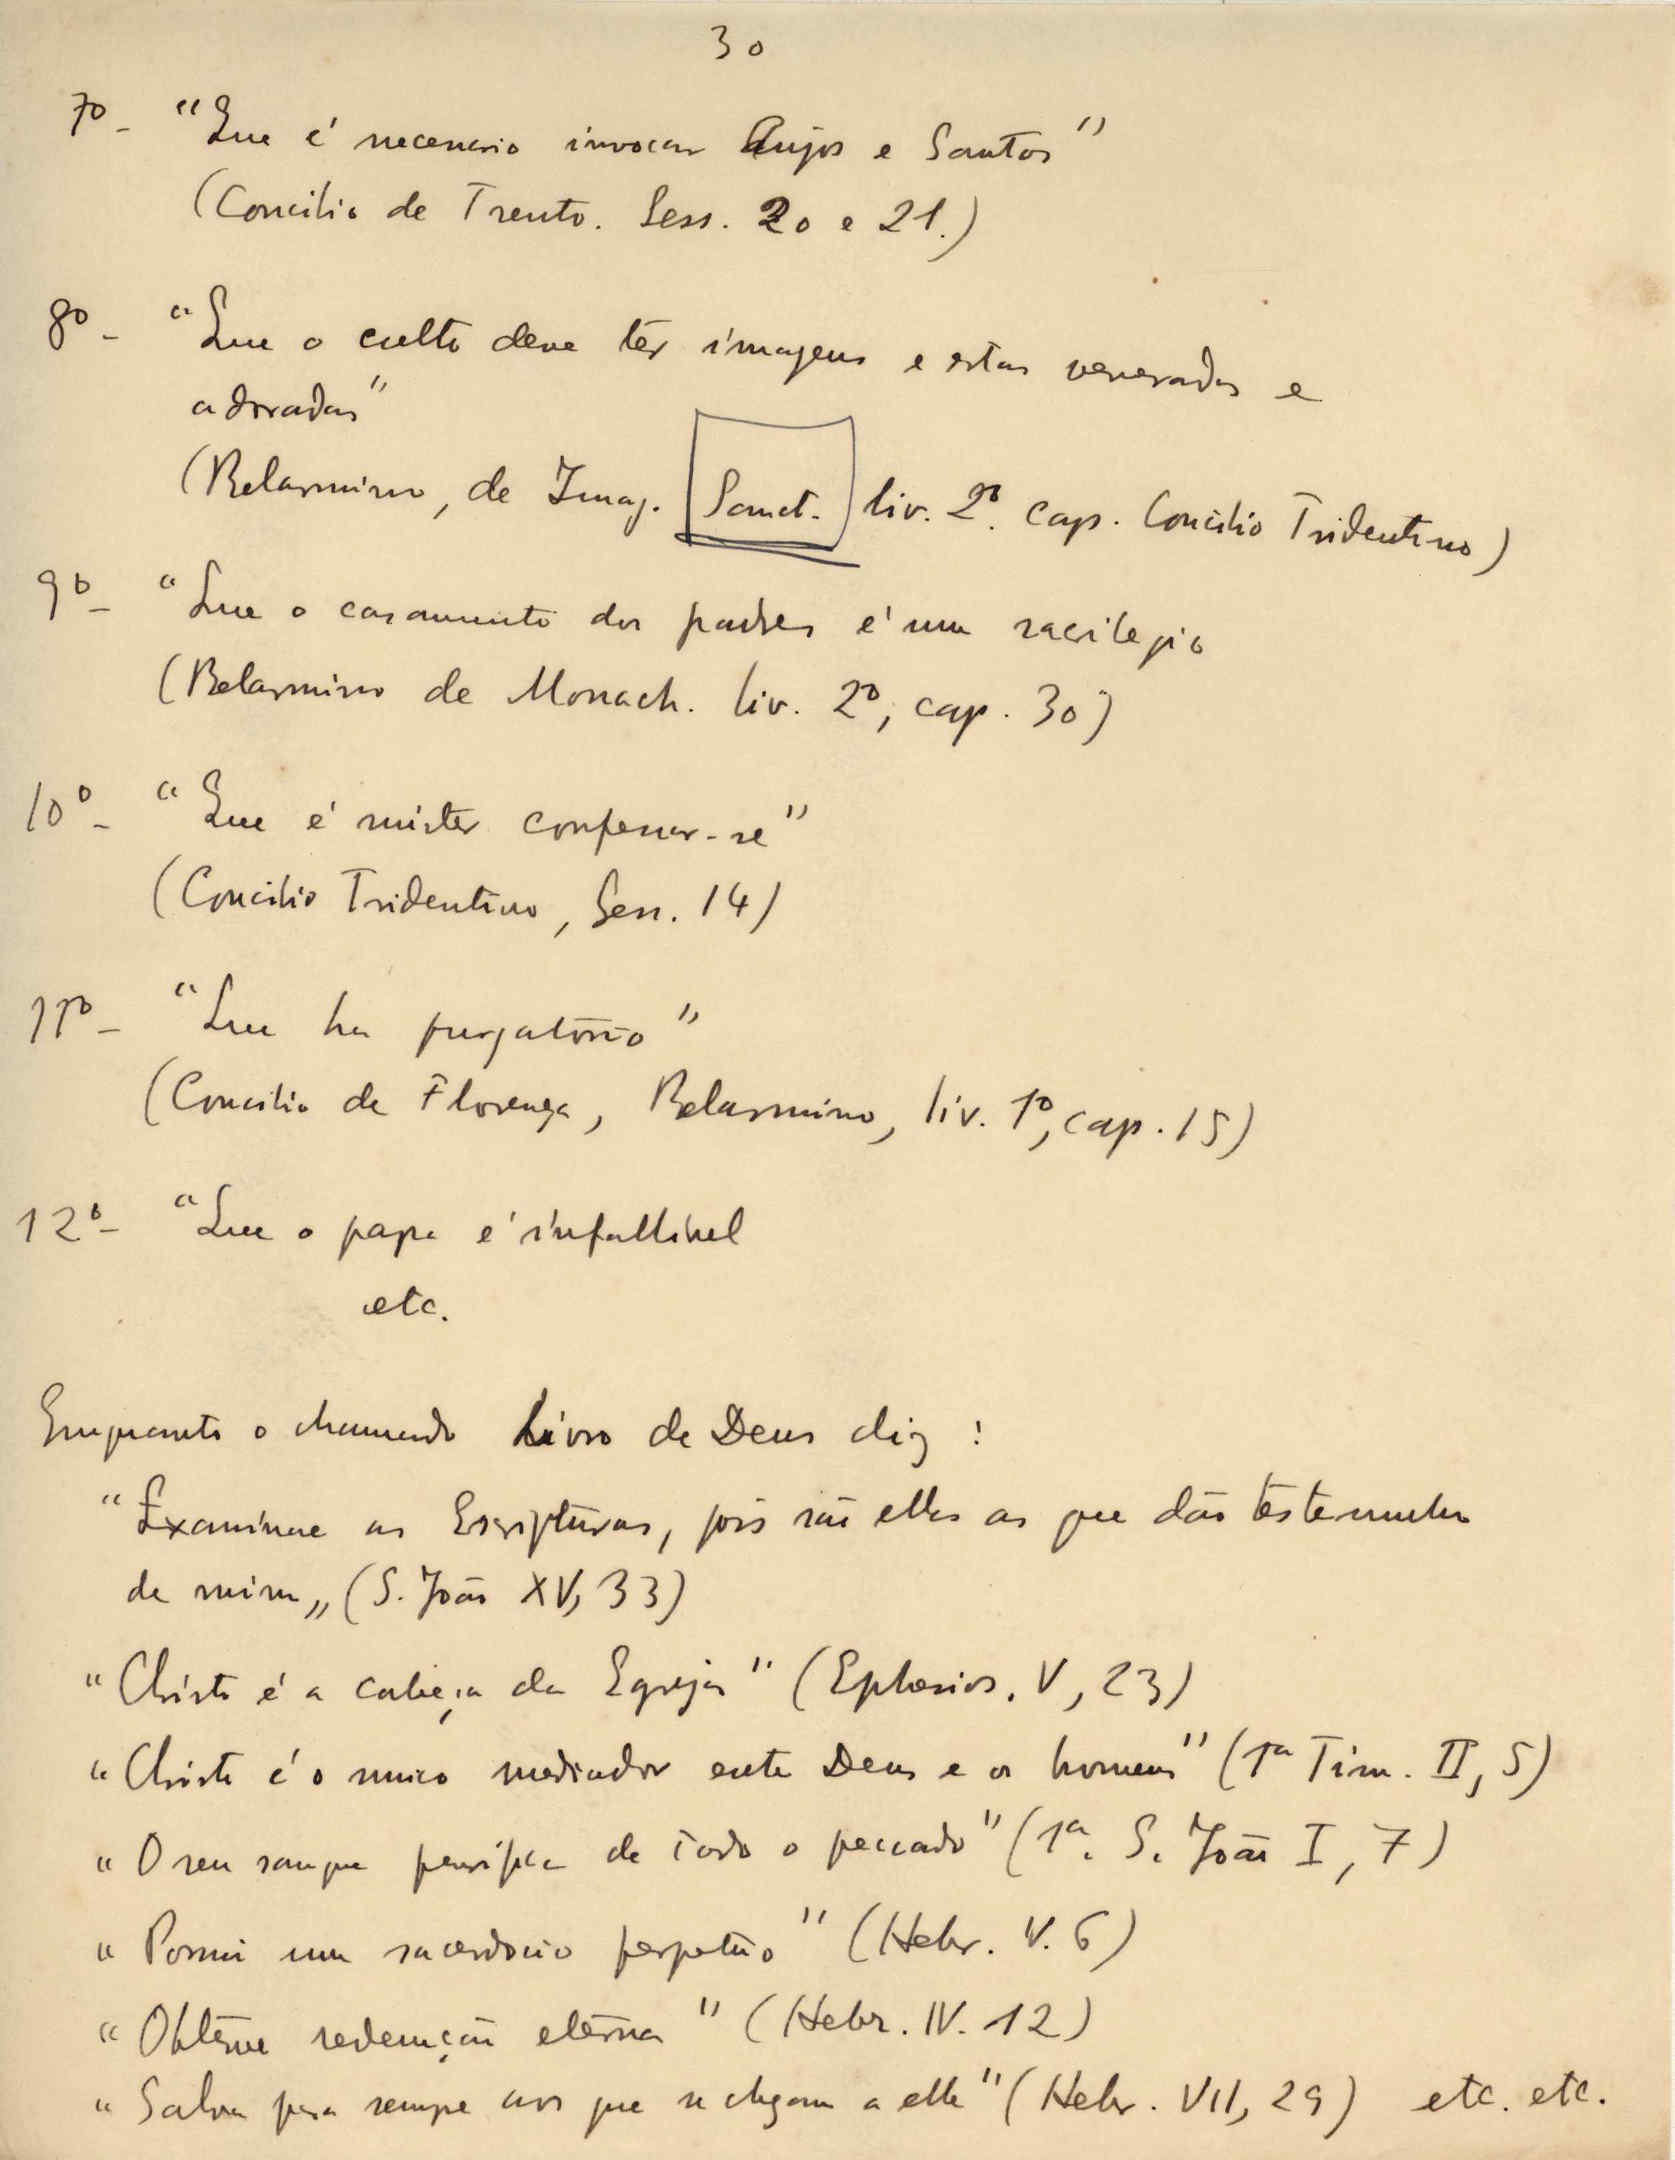 30
7º - "Que é necessario invocar Anjos e Santos"
(Concilio de Trento. Sess. 20 e 21.)
8º - "Que o culto deve ter imagens e estas veneradas e
adoradas"
(Belarmino, de Imag. Sanct. liv. 2º. cap. Concilio Tridentino)
9º - "Que o casamento dos padres é um sacrilegio
(Belarmino de Monach. liv. 2º, cap. 30)
10º - "Que é mister confessar-se"
(Concilio Tridentino, Sess. 14)
11º - "Que ha purgatório"
(Concilio de Florença, Belarmino, liv. 1º, cap. 15)
12º - "Que o papa é infallivel
etc.
Emquanto o chamado Livro de Deus diz:
"Examinae as Escripturas, pois são ellas as que dão testemunho
de mim" (S. João XV, 33)
"Christo é a cabeça da Egreja" (Ephesios. V, 23)
"Christo é o unico mediador entre Deus e os homens" (1ª Tim. II, 5)
"O seu sangue purifica de todo o peccado" (1ª. S. João I, 7)
"Possui um sacerdocio perpetuo" (Hebr. V. 6)
"Obteve redempção eterna" (Hebr. IV. 12)
"Salva para sempre aos que se chegam a elle" (Hebr. VII, 29) etc. etc.